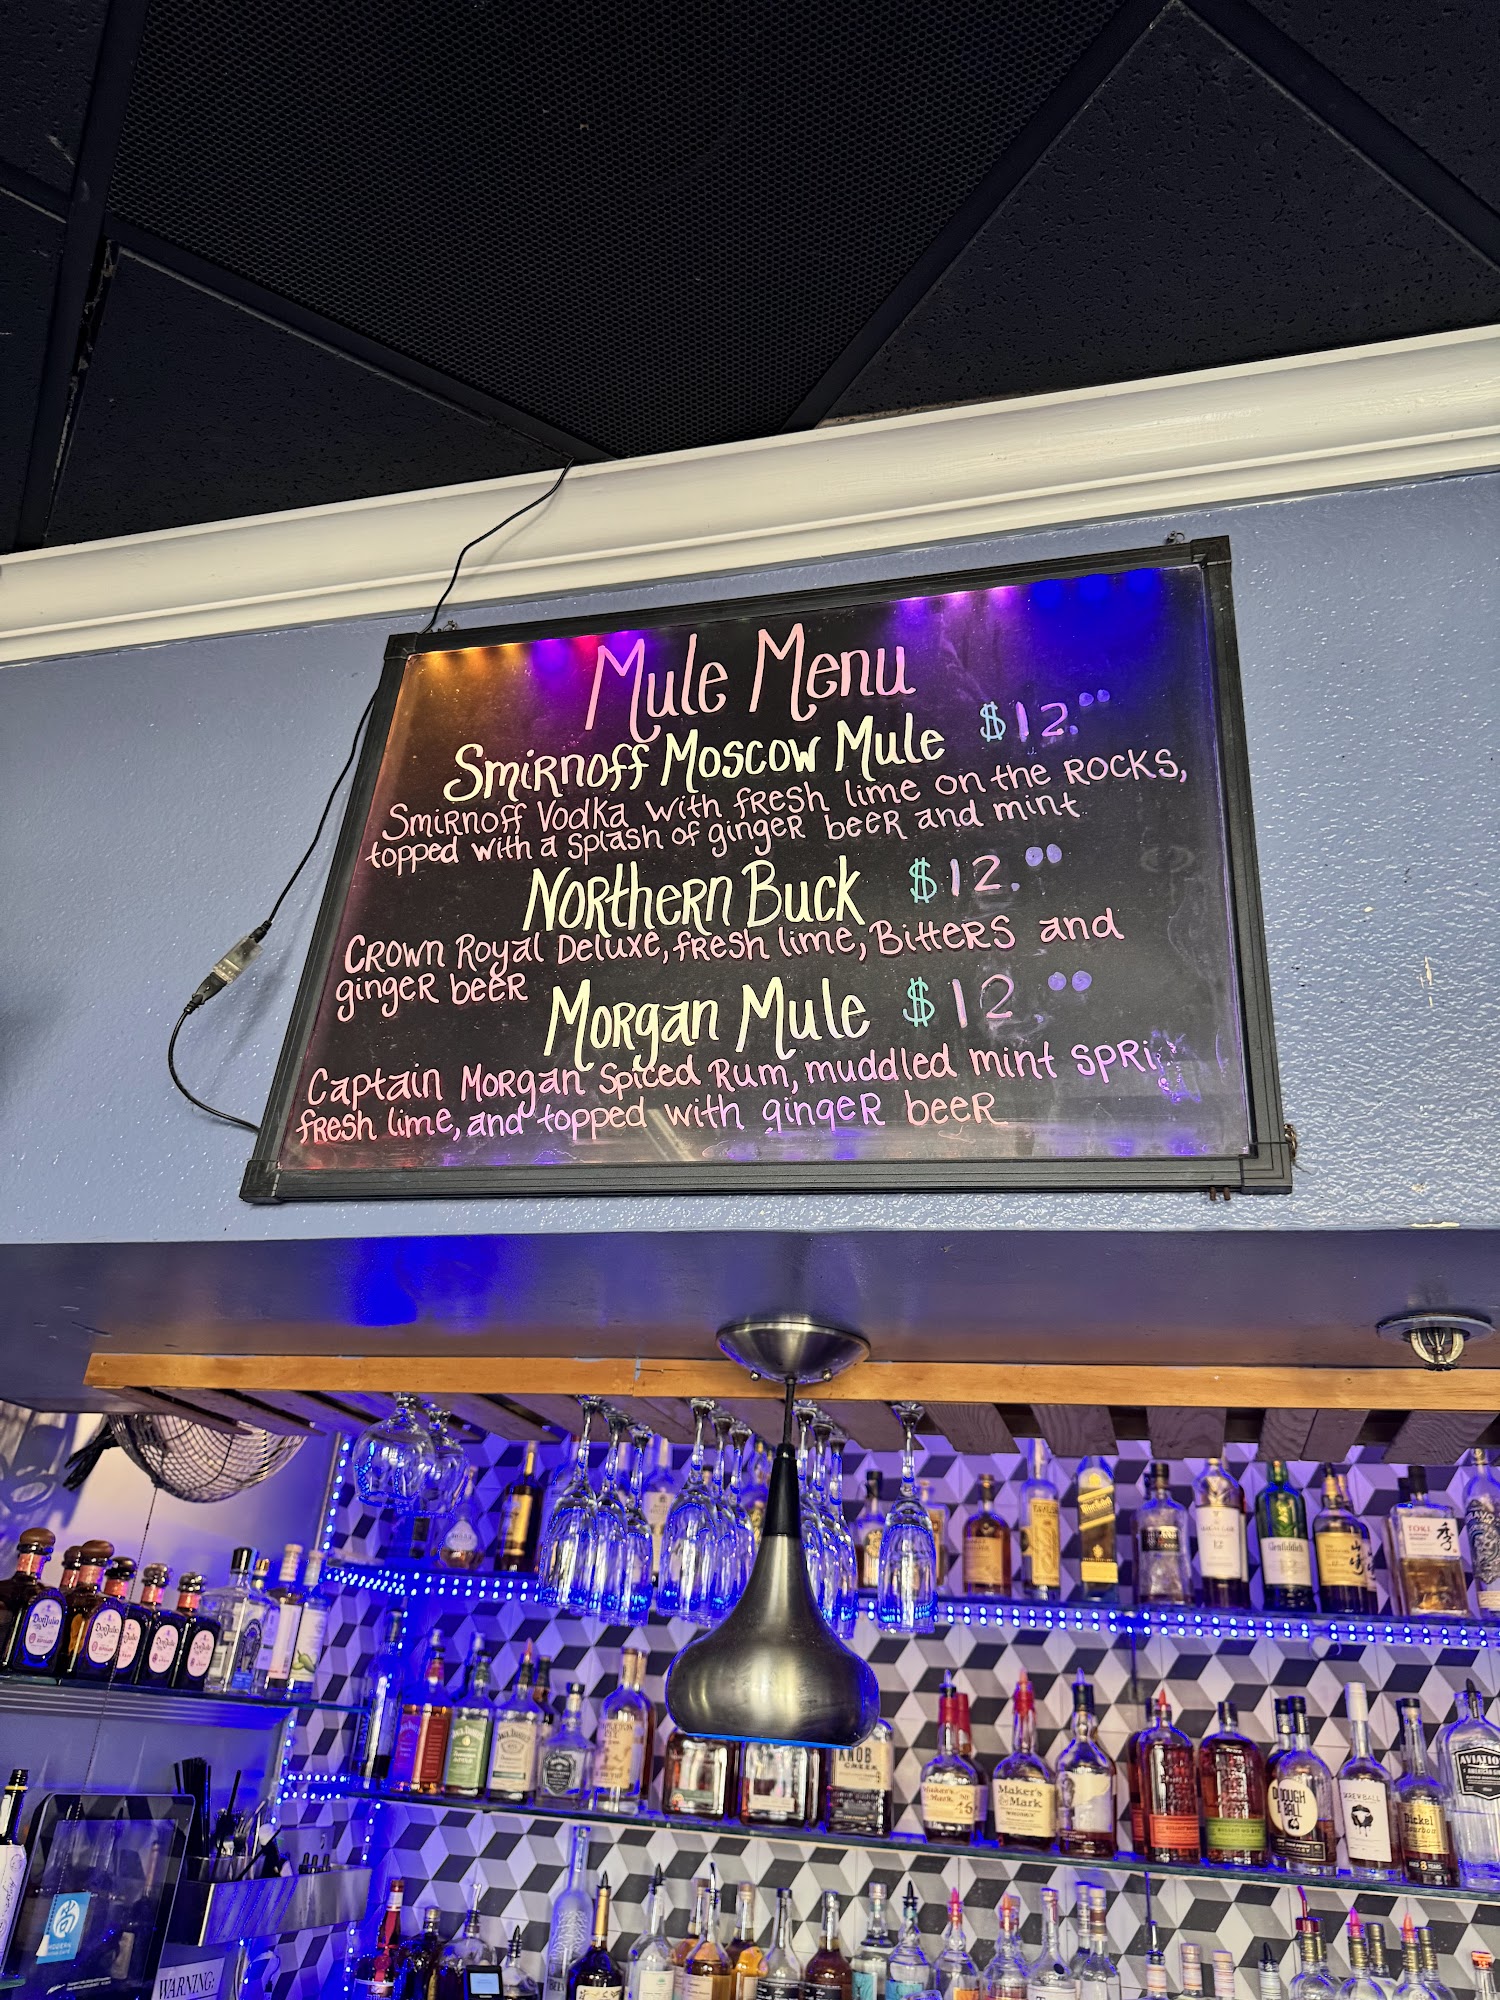 Mule Menu
Smirnoff Moscow Mule $12.00
Smirnoff Vodka with fresh lime on the rocks,
topped with a splash of ginger beer and mint
Northern Buck $12.00
Crown Royal Deluxe, fresh lime, Bitters and
ginger beer
Morgan Mule $12.00
Captain Morgan Spiced Rum, muddled mint spri
fresh lime, and topped with ginger beer
Glenfiddich
TOKI
季
Don Julio
Don Julio
Don Julio
Don Julio
KNOB
CREEK
Maker's
Mark
46
Maker's
Mark
WHISKY
DOUGH
BALL
SKREWBALL
Dickel
Bourbon
AVIATION
WARNING: